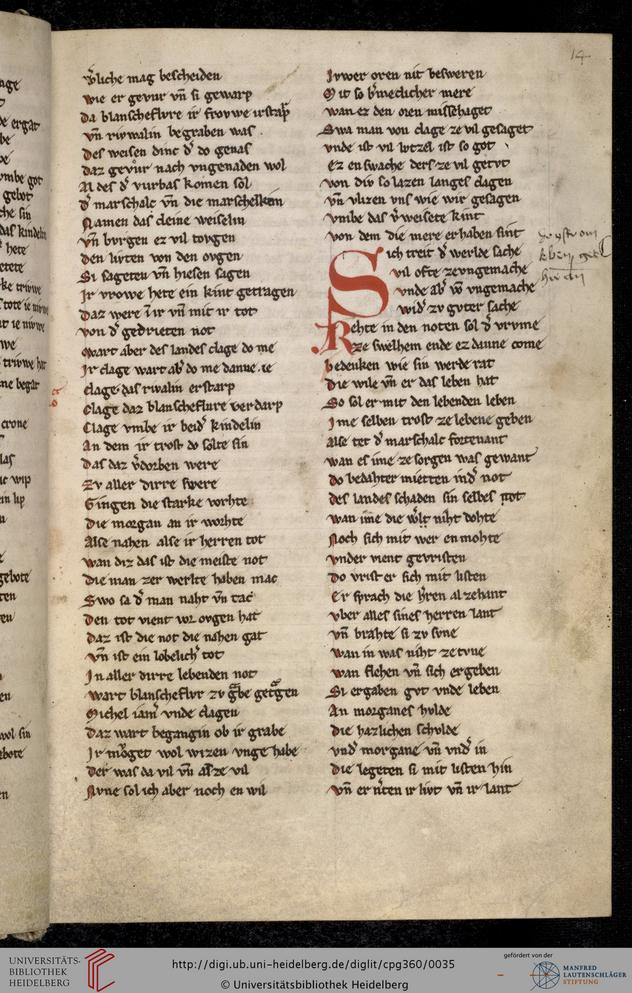 14
v̊liche mag bescheiden
wie er gevůr vn̄ si gewarp
da blanscheflvre ir frovwe irstarp
vn̄ riwalin begraben was
des weisen dinc d' do genas
daz gevůr nach vngenaden wol
Al des d' vurbas komen sol
d' marschalc vn̄ die marschelkein
Namen das cleine weiselin
vn̄ bvrgen ez vil tovgen
den livten von den ovgen
Si sageten vn̄ hiesen sagen
Ir vrowe hete ein kint getragen
daz were in ir vn̄ mit ir tot
von d' gedrieten not
wart aber des landes clage do me
Ir clage wart ab' do me danne ie
clage das riwalin erstarp
clage daz blanscheflure verdarp
Clage vmbe ir beid' kindelin
An dem ir trost do solte sin
das daz v'dorben were
Zv aller dirre swere
Gingen die starke vorhte
die morgan an ir worhte
Alse nahen alse ir herren tot
wan diz das ist die meiste not
die man zer werlte haben mac
Swo sa d' man naht vn̄ tac
den tot vient vor ovgen hat
daz ist die not die nahen gat
vn̄ ist ein lobelich' tot
In aller dirre lebenden not
wart blanscheflvr zv grabe getragen
Michel iam' vnde clagen
daz wart begangin ob ir grabe
Ir mv̊get wol wizen vnge habe
der was da vil vn̄ als ze vil
Nvne sol ich aber noch en wil
Ivwer oren nit besweren
Mit so b'meclicher mere
wan ez den oren missehaget
Swa man von clage ze vil gesaget
vnde ist vil lvtzel ist so got
Ez en swache ders ze vil getvt
von div so lazen langes clagen
vn̄ vlizen vns wie wir gesagen
vmbe das v'weisete kint
von dem die mere erhaben sint
Sich treit d' werlde sache
vil ofte zevngemache
vnde ab' vō vngemache
wid' zv gvter sache
Rehte in den noten sol d' vrvme
Rze swelhem ende ez danne come
bedenken wie sin werde rat
die wile vn̄ er das leben hat
So sol er mit den lebenden leben
Ime selben trost ze lebene geben
Alse tet d' marschalc fortenant
wan es ime ze sorgen was gewant
do bedahter mietten in d' not
des landes schaden sin selbes not
wan ime die w'lt niht dohte
Noch sich mit wer en mohte
vnder vient gevristen
do vrister sich mit listen
Er sprach die h'ren al zehant
vber alles sines herren lant
vn̄ brahte si zv svne
wan in was niht ze tvne
wan flehen vn̄ sich ergeben
Si ergaben gvt vnde leben
An morganes hvlde
die hazlichen schvlde
vnd' morgane vn̄ vnd' in
die legeten si mit listen hin
vn̄ er n'ten ir livt vn̄ ir lant
UNIVERSITÄTS-
BIBLIOTHEK
HEIDELBERG
http://digi.ub.uni-heidelberg.de/diglit/cpg360/0035
© Universitätsbibliothek Heidelberg
gefördert von der
MANFRED
LAUTENSCHLÄGER
STIFTUNG